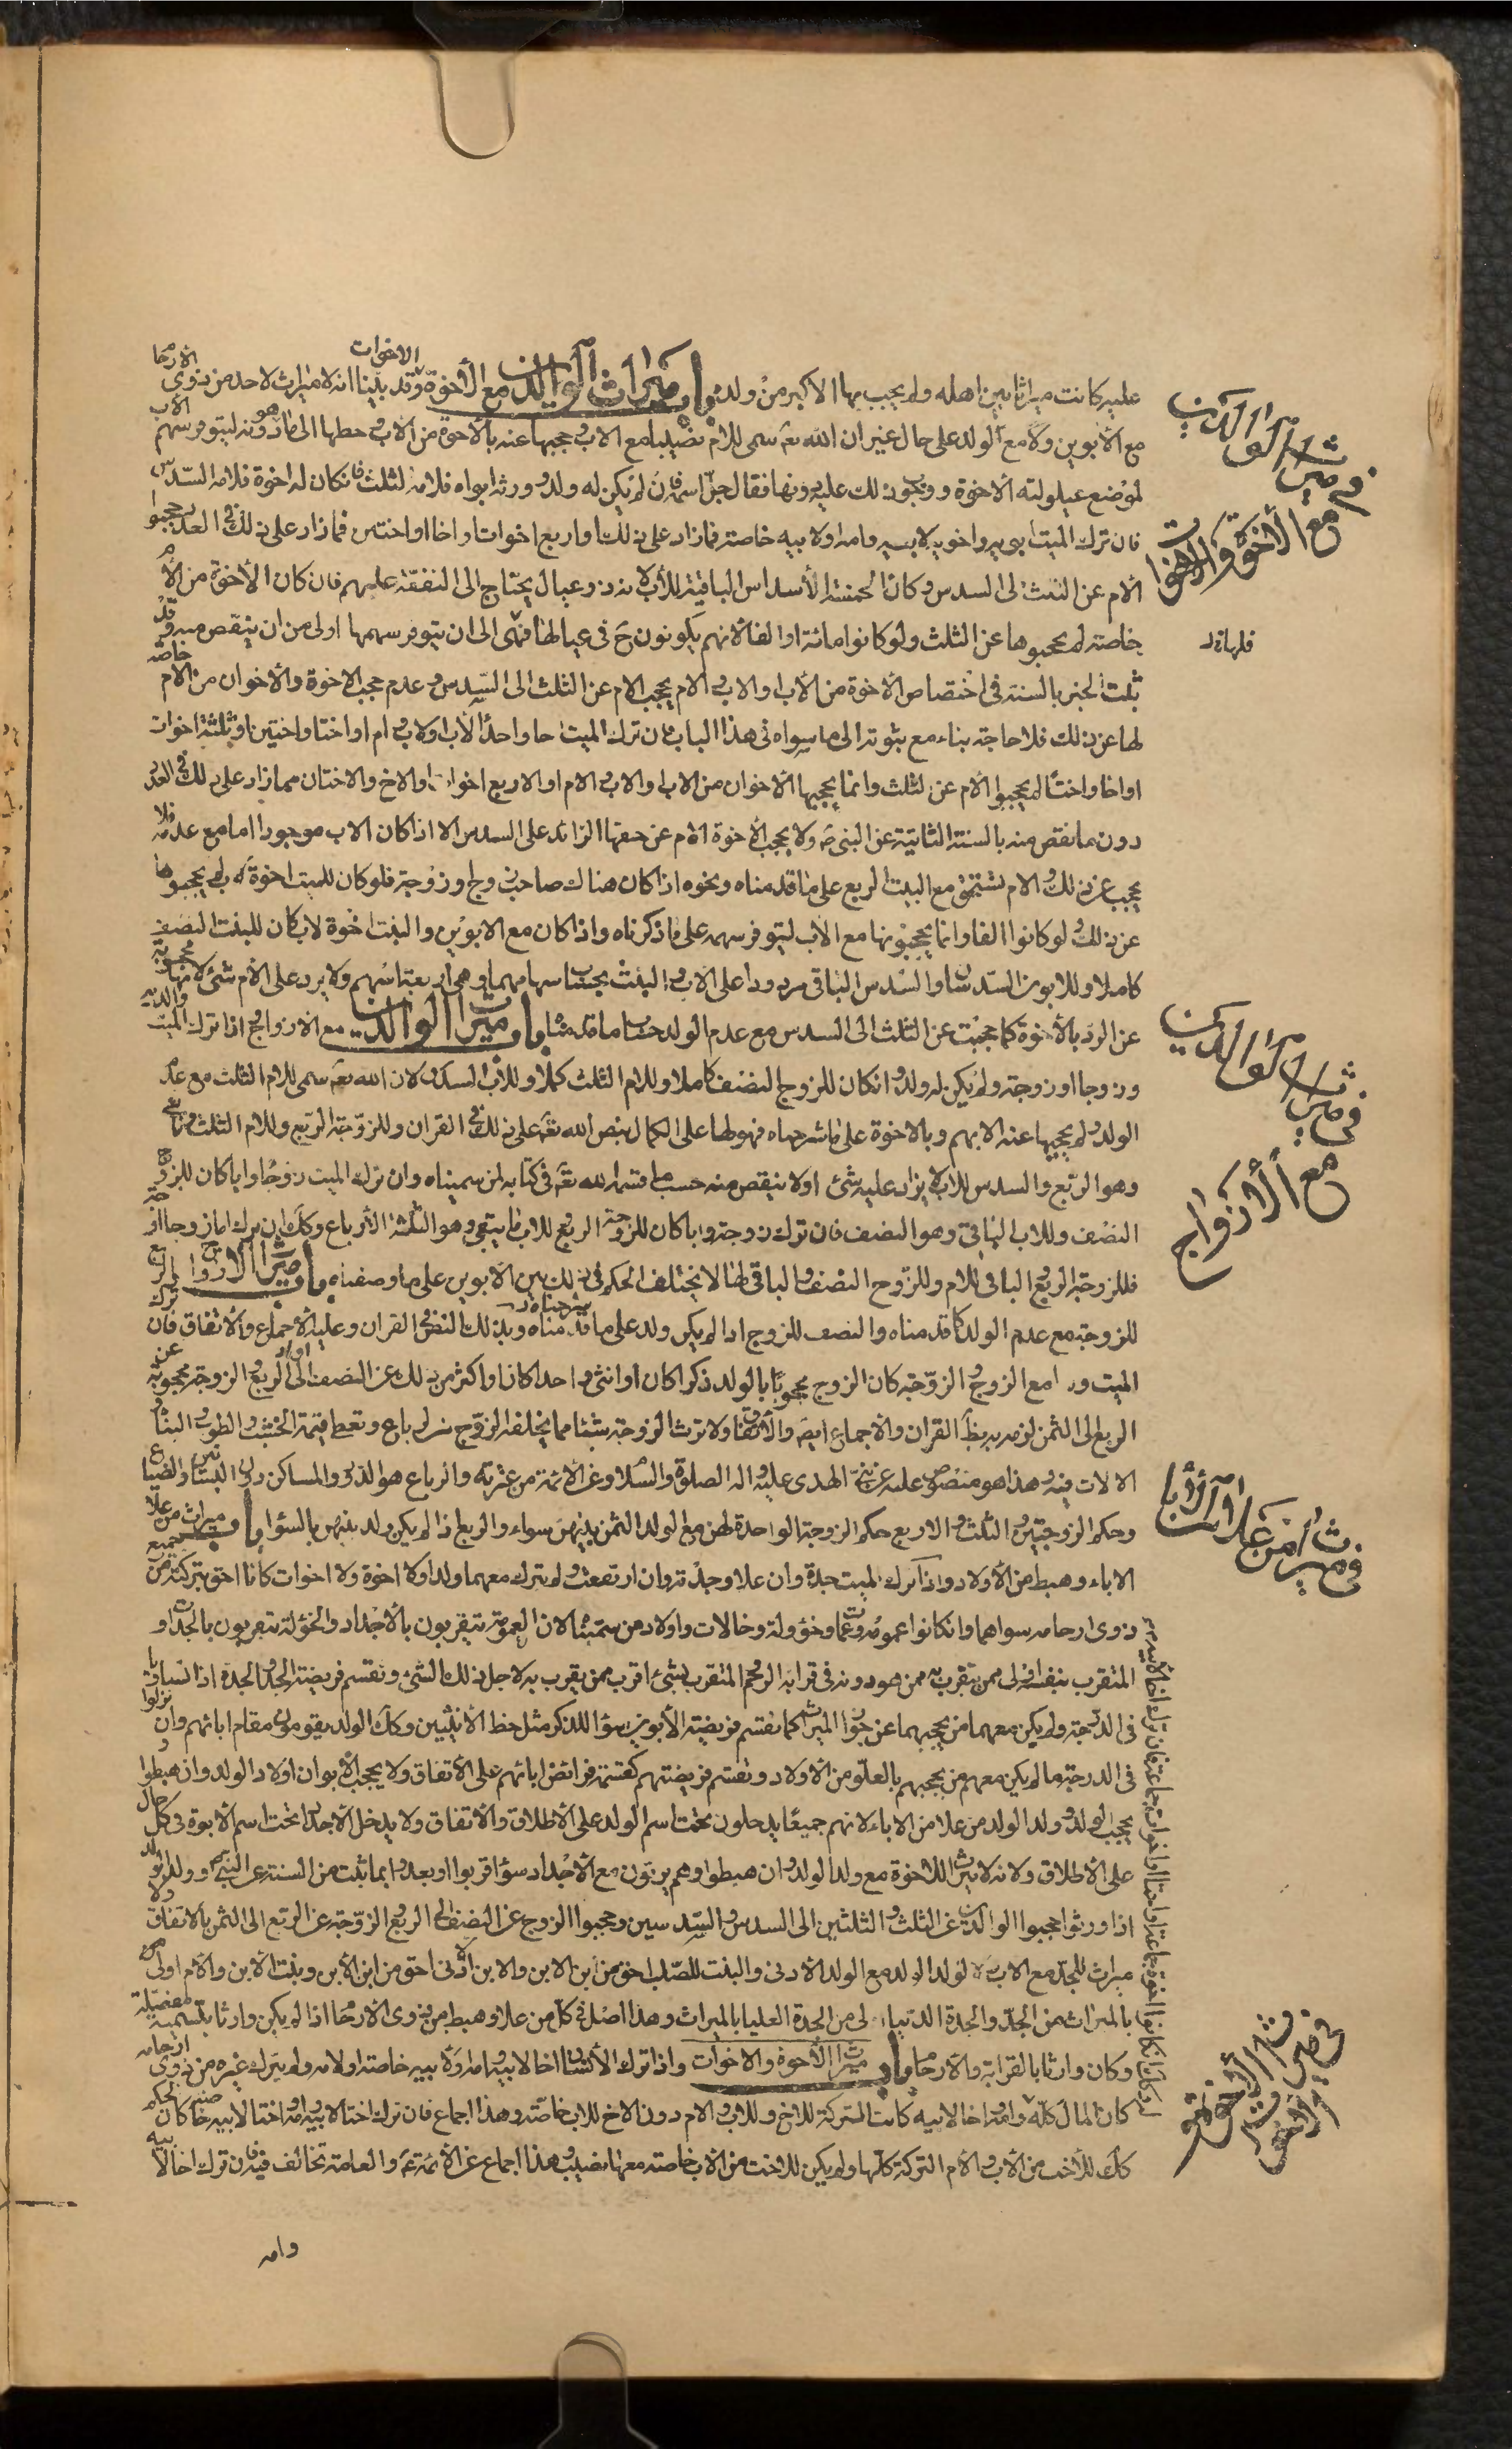 عليه كانت ميراثا بين اهله ولم يجب بها الاكبر من ولده باب ميراث الوالدين مع الأخوة والاخوات وقد بينا انه لا ميراث لاحد من ذوى الارحام
مع الأبوين ولا مع الولد على حال غير ان الله تعـ سمى للام نصيبا مع الاب و حجبها عنه بالاخوة من الاب وحطها الى ما هو دونه ليتوفر سهم الاب
لموضع عيلولته الاخوة ووجوب ذلك عليه دونها فقال جل اسمه فان لم يكن له ولد وورثه ابواه فلامه الثلث فان كان له اخوة فلامه السدس
فان ترك الميت ابويه واخويه لابيه وامه اولابيه خاصة فمازاد على ذلك او اربع اخوات او اخا او اختين فما زاد على ذلك فى العدد حجبوا
الام عن الثلث الى السدس وكانت الخمسة الأسداس الباقية للأب لانه ذو عيال يحتاج الى النفقة عليهم فان كان الأخوة من الأم
خاصة لم يحجبوها عن الثلث ولو كانوا مائة او الفا لانهم يكونون ح فى عيالها فهى الى ان يتوفر سهمها اولى من ان ينقص منه وقد
ثبت الخبر بالسنة فى اختصاص الأخوة من الأب او الاب والام بحجب الام عن الثلث الى السدس وعدم حجب الاخوة والأخوان من الام خاصة
لها عن ذلك فلا حاجة بناء مع ثبوته الى ما سواه فى هذا الباب فان ترك الميت اخا واحدا لأب اولاب وام او اختا او اختين او ثلثة اخوات
او اخا واختا لم يحجبوا الأم عن الثلث وانما يحجبها الأخوان من الاب او الاب والام او الاربع اخوات او الاخ والاختان مما زاد على ذلك فى العدد
دون ما نقص منه بالسنة الثابتة عن النبى ص ولا يحجب الأخوة الام عن حقها الزائد على السدس الا اذا كان الاب موجودا اما مع عدمه فلا
يحجب عن ذلك والام تستحق مع البنت الربع على ما قدمناه ونحوه اذا كان هناك صاحب زوج او زوجة فلو كان للميت اخوة له لم يحجبوها
عن ذلك ولو كانوا الفا وانما يحجبونها مع الأب ليتوفر سهمه على ما ذكرناه واذا كان مع الابوين والبنت اخوة لاب كان للبنت النصف
كاملا وللابوين السدسان والسدس الباقى مردودا على الاب والبنت بحساب سهامهما وهى اربعة اسهم ولا يرد على الأم شئ لانها محجوبة
عن الرد بالأخوة كما حجبت عن الثلث الى السدس مع عدم الولد حسب ما قدمناه باب ميراث الوالدين مع الازواج اذا ترك الميت والديه
وزوجا او زوجة ولم يكن له ولد وان كان للزوج النصف كاملا وللام الثلث كملا وللأب السدس لان الله تعـ سمى للام الثلث مع عدم
الولد ولم يحجبها عنه الا بهم وبالاخوة على ما شرحناه فهو لها على الكمال بنص الله تعـ على ذلك فى القران وللزوجة الربع وللام الثلث
وهو الربع والسدس للاب لا يزاد عليه شئ او لا ينقص منه حسب ما قسمه الله تعـ فى كتابه لمن سميناه وان ترك الميت زوجا وابا كان للزوج
النصف وللاب الباقى وهو النصف فان ترك زوجة وابا كان للزوجة الربع للاب ما يبقى وهو الثلثة الأرباع وكك ان ترك اما وزوجا او زوجة
فللزوجة الربع والباقى للام وللزوج النصف والباقى لها لا يختلف الحكم فى ذلك بين الأبوين على ما وصفناه باب ميراث الازواج الربع
للزوجة مع عدم الولد كما قدمناه والنصف للزوج اذا لم يكن ولد على ما قدمناه شرحناه وبذلك النص فى القران وعليه الأجماع والأتفاق فان ترك
الميت ولدا مع الزوج او الزوجة كان الزوج محجوبا بالولد ذكرا كان او انثى واحدا كان او اكثر من ذلك عن النصف الى الربع والزوجة محجوبة عن
الربع الى الثمن لوضوء بظـ القران والأجماع ايضا والأتفاق ولا ترث الزوجة شيئا مما يخلفه الزوج من الرباع وتعطى قيمة الخشب والطوب والبناء
الالات فيه وهذا هو منصوص عليه عن نبى الهدى عليه واله الصلوة والسلام وعن الائمة من عترته والرباع هو الدور والمساكن دون البساتين والضياع
وحكم الزوجتين والثلث والاربع حكم الزوجة الواحدة لهن مع الولد الثمن بينهن سواء والربع اذا لم يكن ولد بينهن بالسواء باب ميراث من علا
الاباء وهبط من الأولاد واذا ترك الميت جده وان علا وجدته وان ارتفعت ولم يترك معهما ولدا ولا اخوة ولا اخوات كانا احق بتركته من جميع
ذوى ارحامه سواهما وان كانوا عمومة وعمات وخؤولة وخالات واولاد من سميناه لان العمومة يتقربون بالأجداد والخؤلة يتقربون بالجدات و
المتقرب بنفسه اولى ممن يتقرب به ممن هو دونه فى قرابة الرحم المتقرب بشئ اقرب ممن يقرب به لاجل ذلك الشئ وتقسم فريضة الجد والجدة اذا تساويا
فى الدرجة ولم يكن معهما من يحجبهما عن جواز الميراث كما تقسم فريضة الأبوين سواء للذكر مثل حظ الانثيين وكك الولد يقومون مقام ابائهم وان نزلوا
فى الدرجة ما لم يكن معهم من يحجبهم بالعلو من الأولاد وتقسم فريضتهم كقسمة فرائض ابائهم على الأتفاق ولا يحجب الأبوان اولاد الولد وان هبطوا و
يحجب الولد ولد الولد من علا من الاباء لانهم جميعا يدخلون تحت اسم الولد على الأطلاق والأتفاق ولا يدخل الأجداد تحت اسم الأبوة فى كل حال
على الأطلاق ولانه لا ميراث للاخوة مع ولد الولد وان هبطوا وهم يرثون مع الأجداد سواء قربوا او بعدوا بما ثبت من السنة عن النبى ص وولد الولد
اذا ورثوا حجبوا الوالدين عن الثلث والثلثين الى السدس والسدسين وحجبوا الزوج عن النصف الى الربع والزوجة عن الربع الى الثمن بالاتفاق ولا
ميراث للجد مع الاب ولا لولد الولد مع الولد الأدنى والبنت للصلب احق من ابن الابن والابن الأدنى احق من ابن الأبن وبنت الأبن والأم اولى
بالميراث من الجد والجدة الدنيا اولى من الجدة العليا بالميراث وهذا اصل فى كل من علا وهبط من ذوى الارحام اذا لم يكن وارثا بتسمية مفصلة
وكان وارثا بالقرابة والأرحام باب ميراث الأخوة والاخوات واذا ترك الأنسان اخا لابيه وامه اولابيه خاصة اولامه ولم يترك غيره من ذوى ارحامه
كان المال كله واخا لابيه كانت التركة للاخ وللاب والام دون الاخ للاب خاصة وهذا اجماع فان ترك اختا لابيه وامه واختا لابيه كان
كك للأخت من الأب والأم التركة كلها ولم يكن للاخت من الأب خاصة معها نصيب وهذا اجماع عن الأئمة ع والعامة تخالف فيه فان ترك اخا لابيه
وامه
فى ميراث الوالدين
مع الأخوة والاخوات
فى ميراث الوالدين
مع الأزواج
فى ميراث من علا من الأباء
فى ميراث الأخوة
والأخوات